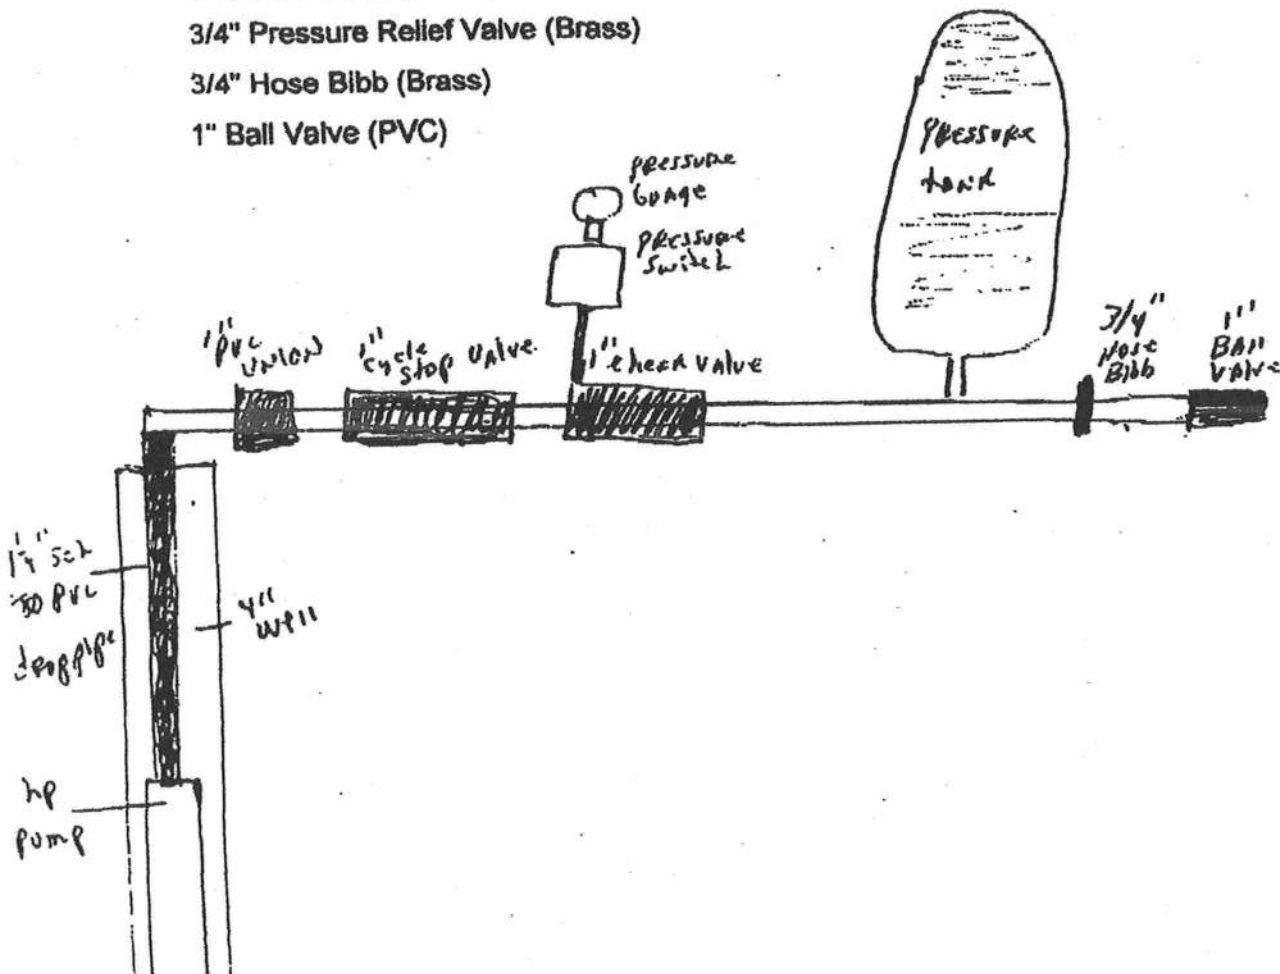 3/4" Pressure Relief Valve (Brass)
3/4" Hose Bibb (Brass)
1" Ball Valve (PVC)
PRESSURE
GUAGE
PRESSURE
SWITCH
PRESSURE
TANK
1"
PVC
UNION
1"
CYCLE
STOP VALVE
1" CHECK VALVE
3/4"
HOSE
BIBB
1"
BALL
VALVE
1 1/4" SCH
PVC
DROP PIPE
4"
WELL
HP
PUMP